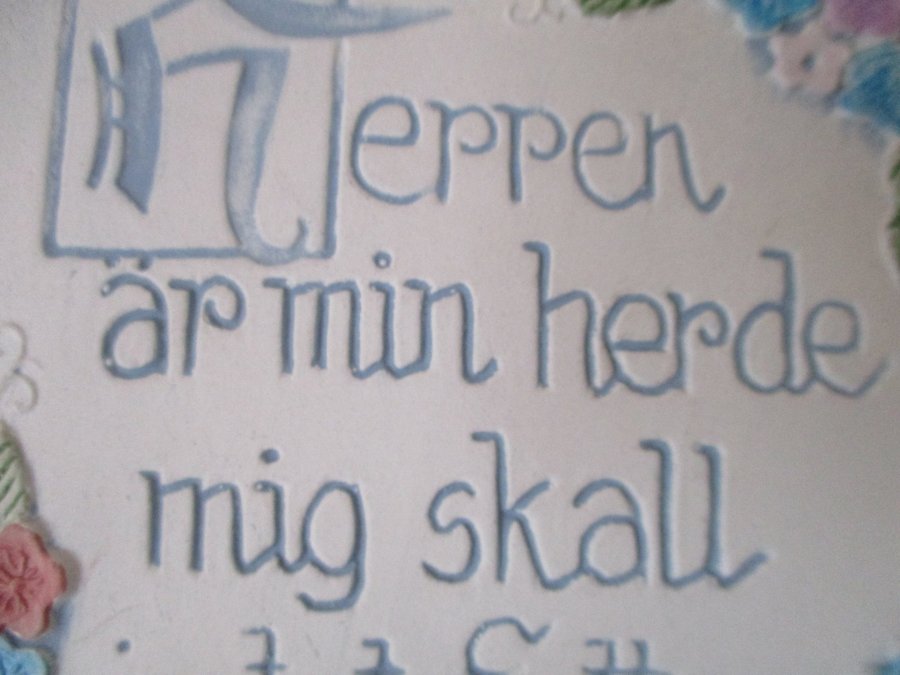 Herren
är min herde
mig skall